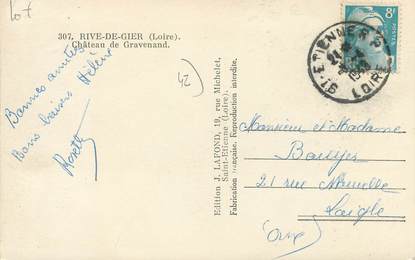 lot
307. RIVE-DE-GIER (Loire).
Château de Gravenand.
42
Bonnes amitiés
Bons baisers Hélène
Edition J. LAFOND, 19, rue Michelet,
Saint-Etienne (Loire).
Fabrication Française. Reproduction interdite.
8F
POSTES
ST ETIENNE
LOIRE
Monsieur et Madame
21 rue
Laigle
(Orne)